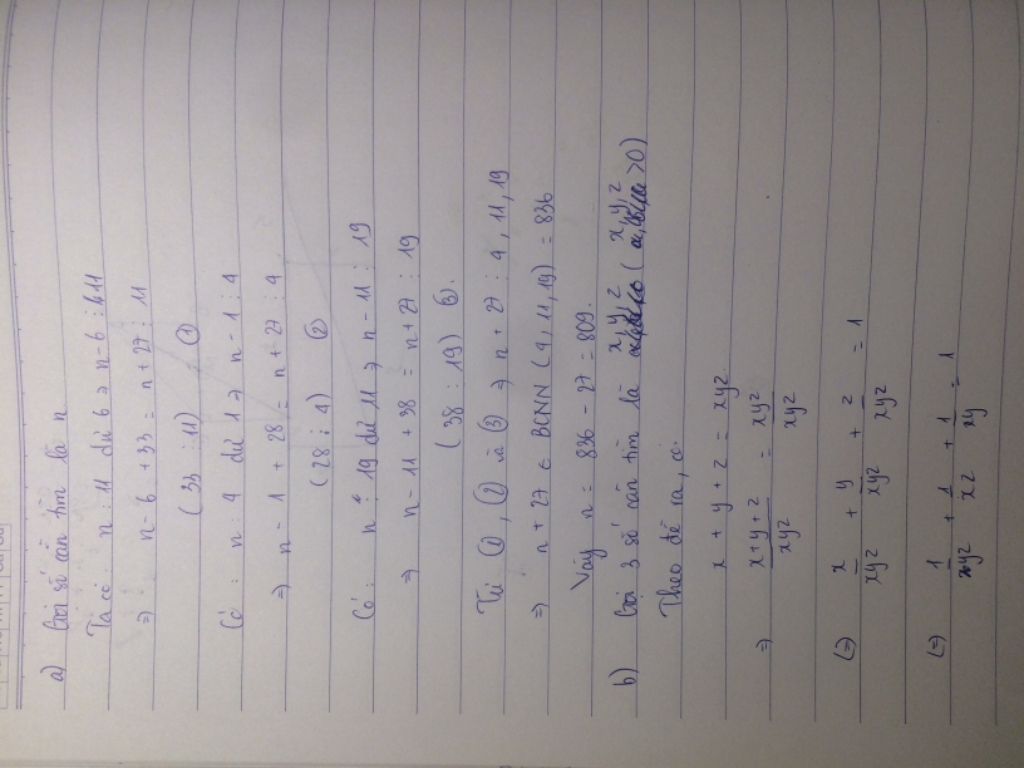 a) Gọi số cần tìm là n
Ta có n : 11 dư 6 => n - 6 ⋮ 11
=> n - 6 + 33 = n + 27 ⋮ 11
(33 ⋮ 11) ①
Có : n : 4 dư 1 => n - 1 ⋮ 4
=> n - 1 + 28 = n + 27 ⋮ 4
(28 ⋮ 4) ②
Có : n : 19 dư 11 => n - 11 ⋮ 19
=> n - 11 + 38 = n + 27 ⋮ 19
(38 ⋮ 19) ③.
Từ ①, ② và ③ => n + 27 ⋮ 4, 11, 19
=> n + 27 ∈ BCNN (4, 11, 19) = 836
Vậy n = 836 - 27 = 809.
b) Gọi 3 số cần tìm là x, y, z ( x, y, z > 0)
Theo đề ra, c
x + y + z = xyz
=> (x + y + z)/xyz = xyz/xyz
(=) x/xyz + y/xyz + z/xyz = 1
(=) 1/yz + 1/xz + 1/xy = 1